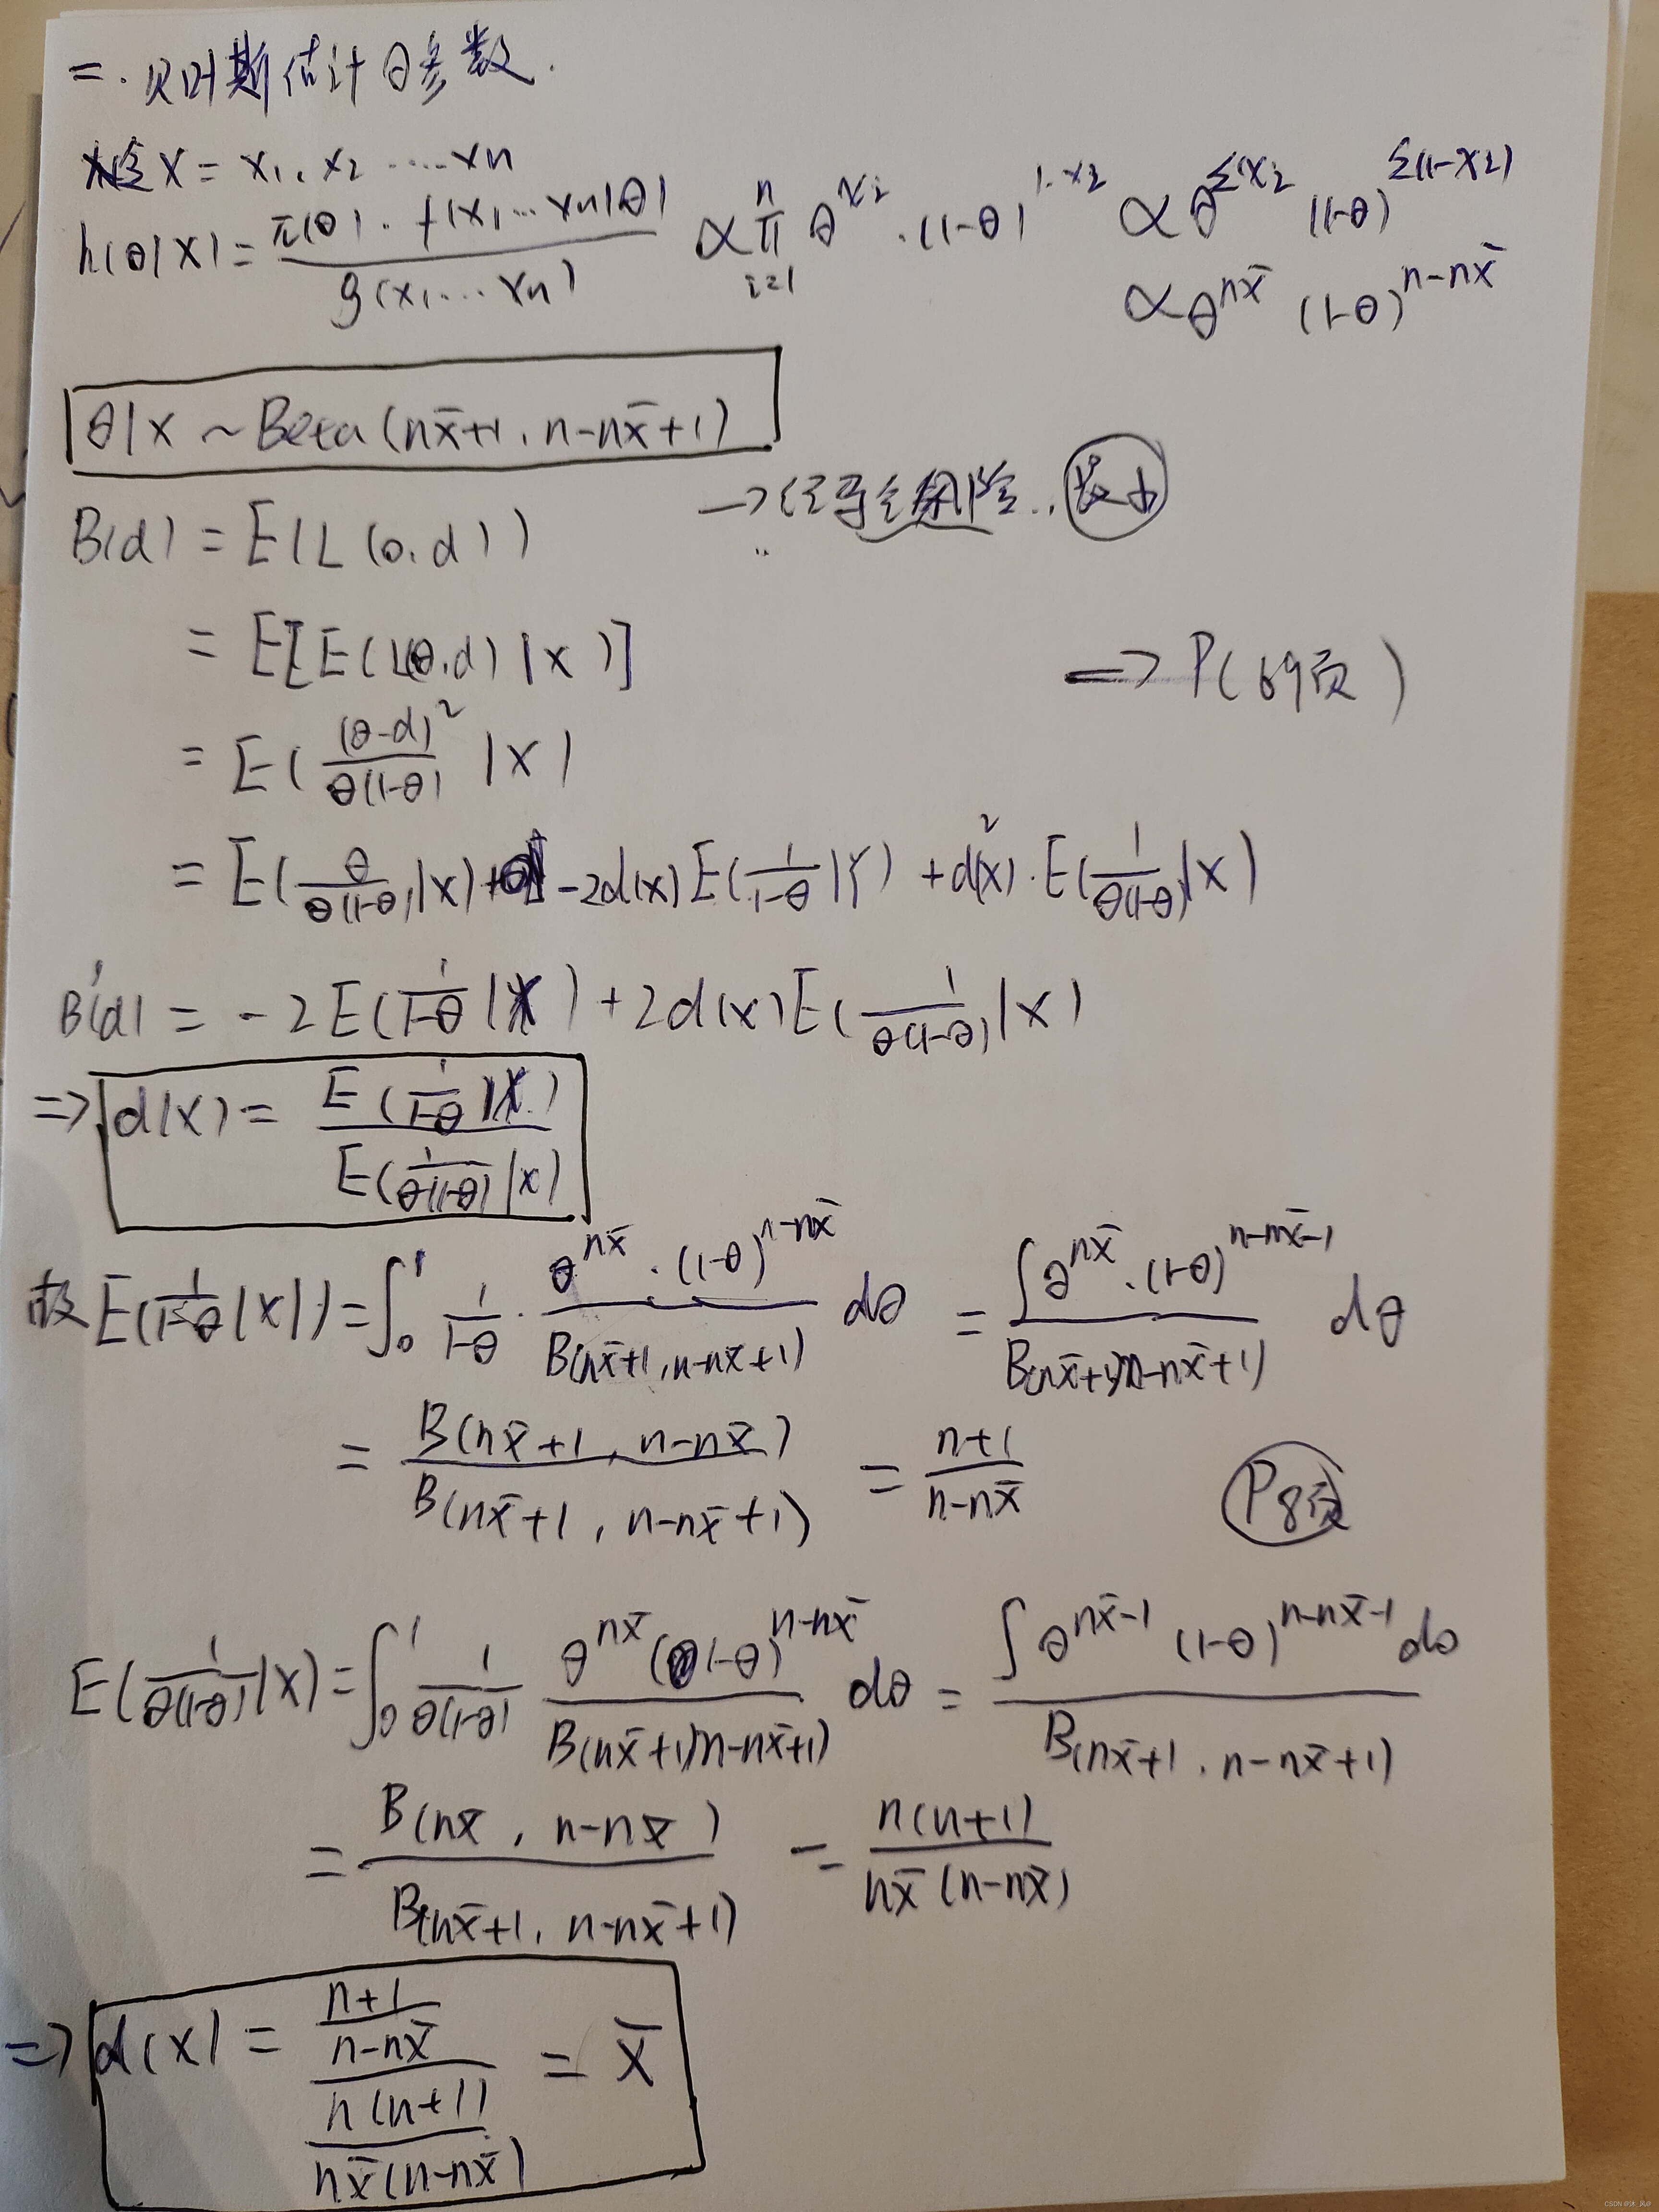 二.贝叶斯估计θ参数.
X = x1, x2 ..... xn
h(θ|X) = π(θ) · f(x1 ... xn|θ) / g(x1 ... xn) ∝ ∏_{i=1}^{n} θ^{xi} · (1-θ)^{1-xi} ∝ θ^{Σxi} (1-θ)^{Σ(1-xi)}
∝ θ^{nx̄} (1-θ)^{n-nx̄}
θ|X ~ Beta(nx̄+1, n-nx̄+1)
B(d) = E(L(θ,d)) → 风险 最小
= E[E(L(θ,d)|X)] ⟹ P(69页)
= E((θ-d)²/θ(1-θ) |X)
= E(θ/θ(1-θ) |X) -2d(x)E(1/1-θ |X) + d²(x)·E(1/θ(1-θ) |X)
B'(d) = -2E(1/1-θ |X) + 2d(x)E(1/θ(1-θ) |X)
⟹ d(x) = E(1/1-θ |X) / E(1/θ(1-θ) |X)
故 E(1/1-θ |X) = ∫₀¹ 1/1-θ · θ^{nx̄}·(1-θ)^{n-nx̄} / B(nx̄+1, n-nx̄+1) dθ = ∫θ^{nx̄}·(1-θ)^{n-nx̄-1} / B(nx̄+1, n-nx̄+1) dθ
= B(nx̄+1, n-nx̄) / B(nx̄+1, n-nx̄+1) = n+1 / n-nx̄ P8页
E(1/θ(1-θ) |X) = ∫₀¹ 1/θ(1-θ) θ^{nx̄}(1-θ)^{n-nx̄} / B(nx̄+1, n-nx̄+1) dθ = ∫θ^{nx̄-1} (1-θ)^{n-nx̄-1}dθ / B(nx̄+1, n-nx̄+1)
= B(nx̄, n-nx̄) / B(nx̄+1, n-nx̄+1) = n(n+1) / nx̄(n-nx̄)
⟹ d(x) = (n+1 / n-nx̄) / (n(n+1) / nx̄(n-nx̄)) = x̄